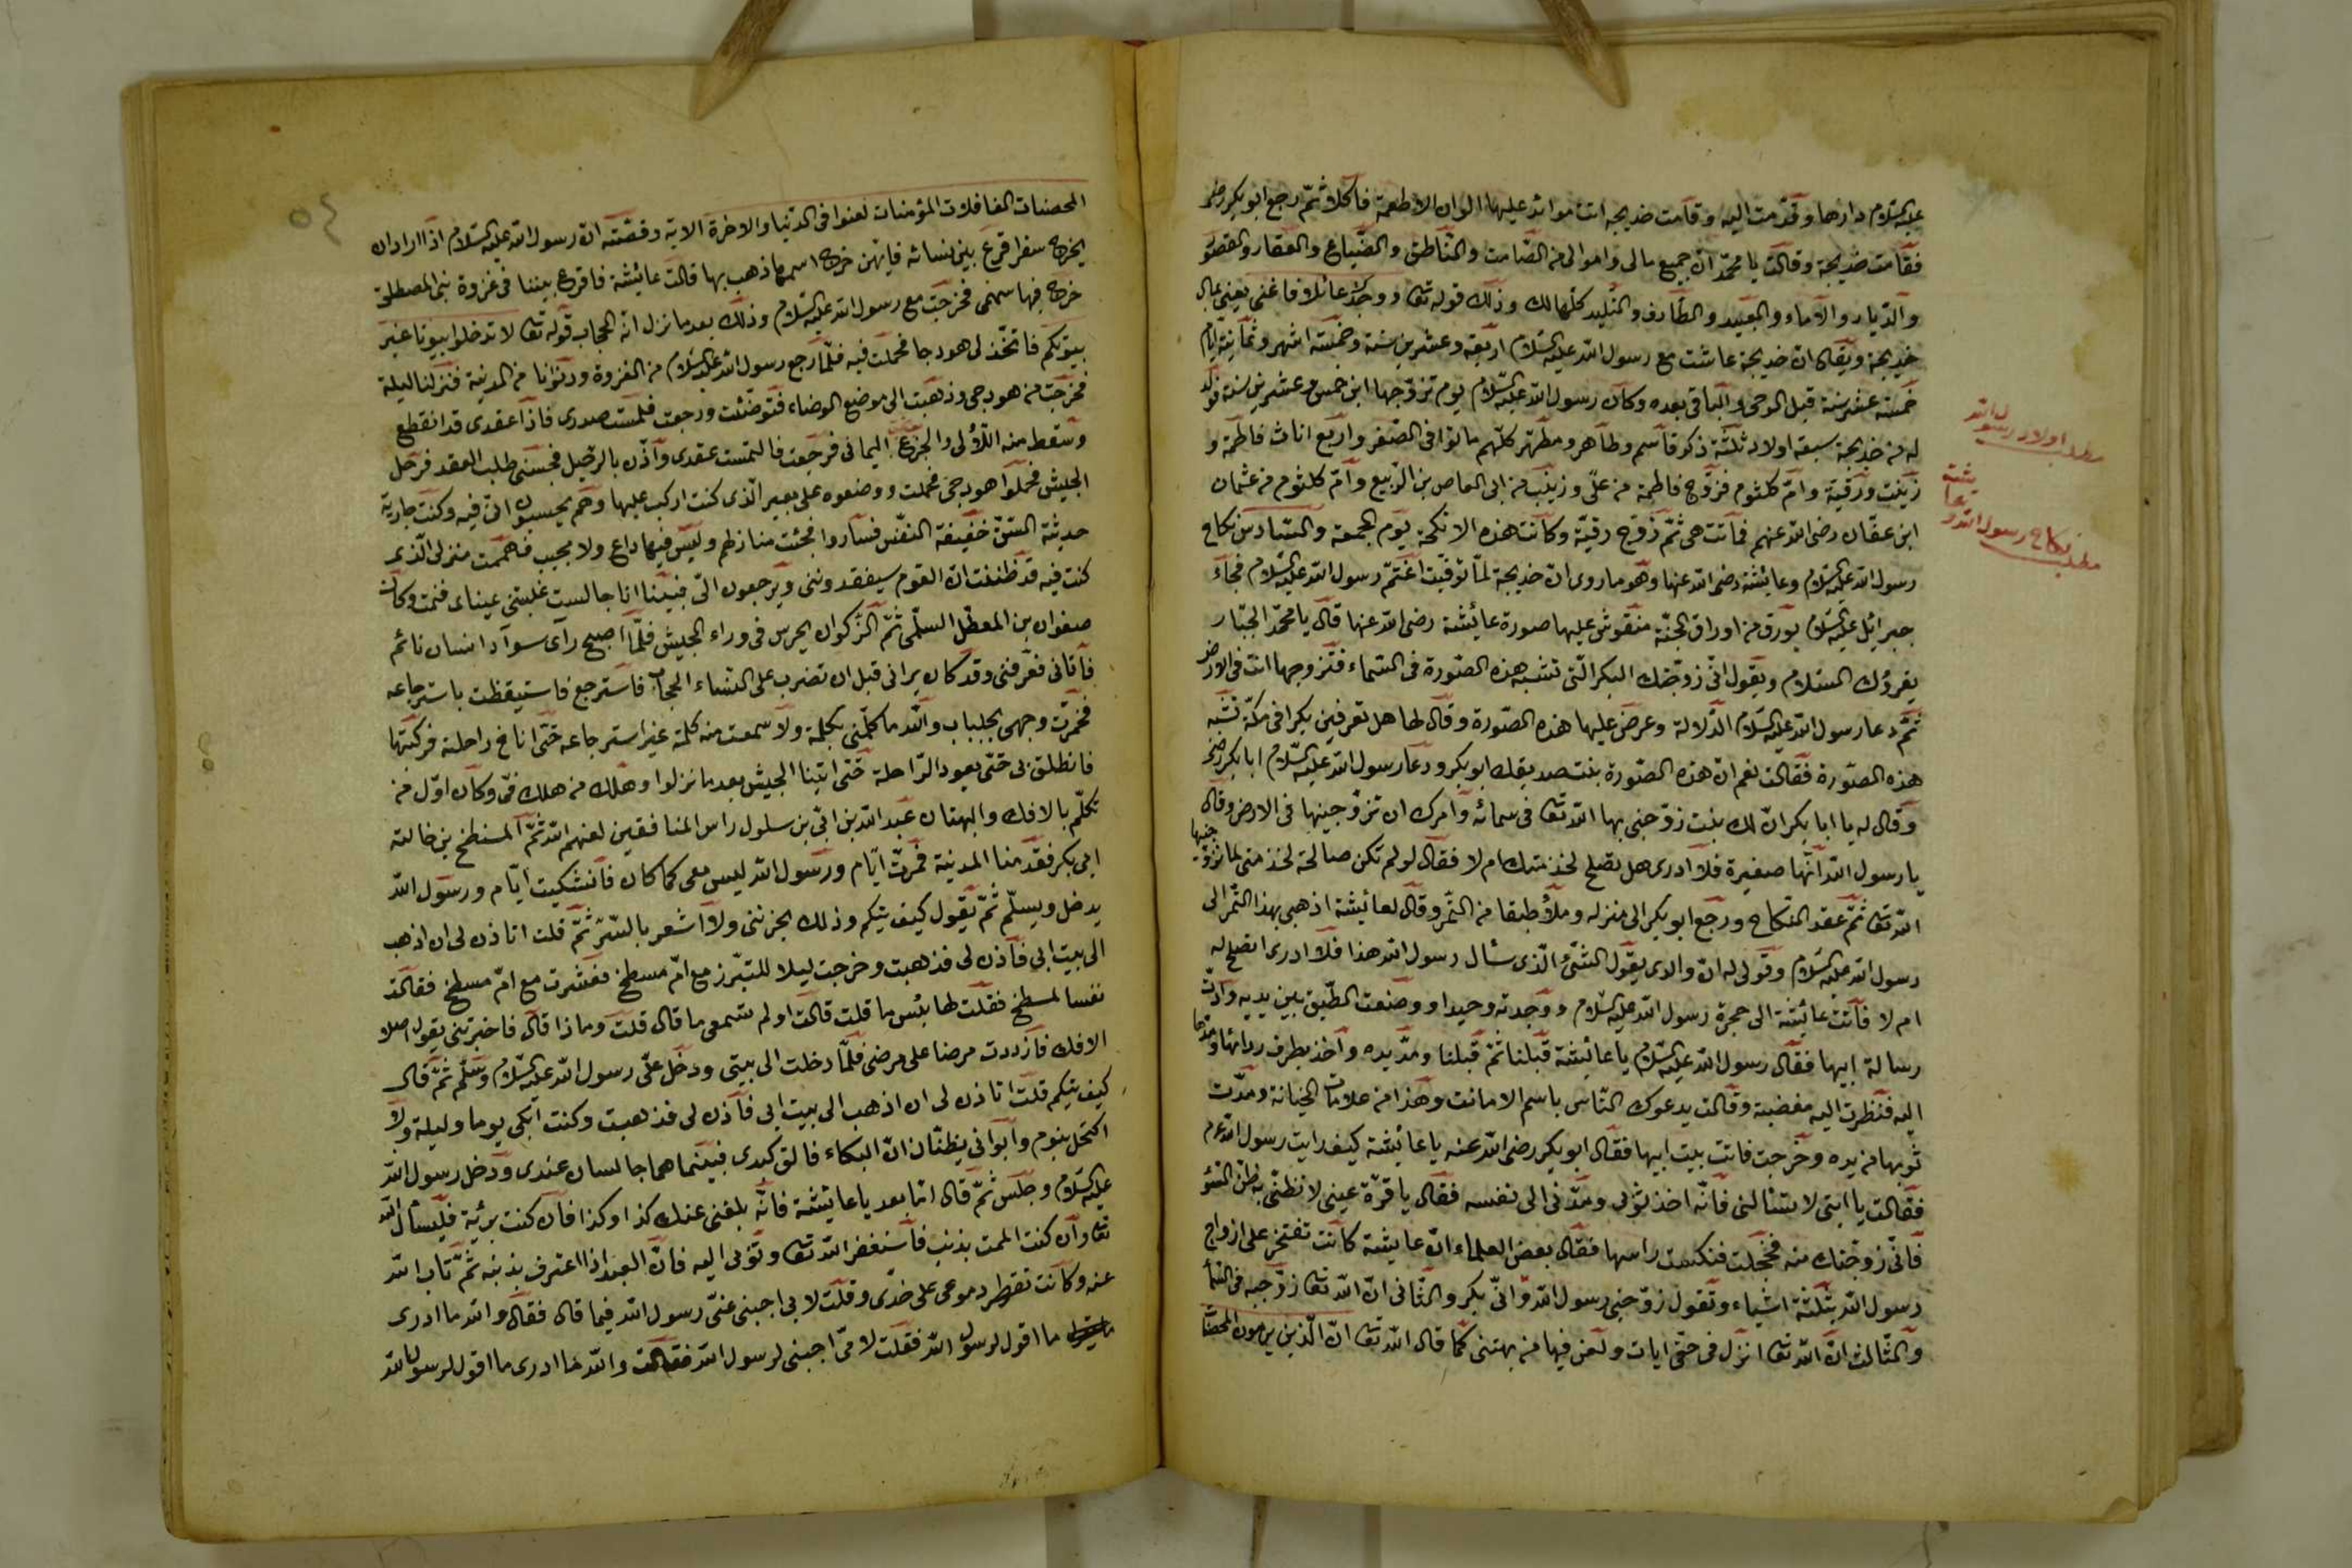 عليه السلام دارها وقدمت اليه وقامت خديجه اتت موائد عليها الوان الاطعمة فاكلا ثمّ رجع ابو بكر رضى
فقامت خديجة وقالت يا محمّد انّ جميع مالى واموالى من الصّامت والنّاطق والضّياع والعقار والقصور
والدّيار والاماء والعبيد والطّارف والتّليد كلّها لك وذلك قوله تعا ووجدك عائلا فاغنى يعنى بمال
خديجة ويقال ان خديجة عاشت مع رسول الله عليه السّلام اربعة وعشرين سنة وخمسة اشهر وثمانية ايّام
خمسة عشر سنة قبل الوحى والباقى بعده وكان رسول الله عليه السّلام يوم تزوّجها ابن خمس وعشرين سنة فولد
له من خديجة سبعة اولاد ثلثة ذكر قاسم وطاهر ومطهّر كلّهم ماتوا فى الصّغر واربع اناث فاطمة و
زينب ورقيّة وامّ كلثوم فزوّج فاطمة من علىّ وزينب من ابى العاص بن الرّبيع وامّ كلثوم من عثمان
ابن عفّان رضى الله عنهم فماتت هى ثمّ زوّج رقيّة وكانت هذه الانكحة يوم الجمعة والسّادس نكاح
رسول الله عليه السّلام وعائشة رضى الله عنها وهو ما روى انّ خديجة لمّا توفّيت اغتمّ رسول الله عليه السّلام فجاء
جبرائيل عليه السّلام بورق من اوراق الجنّة منقوش عليها صورة عائشة رضى الله عنها قال يا محمّد الجبّار
يقرؤك السّلام ويقول انّى زوّجتك البكر الّتى تشبه هذه الصّورة فى السّماء فتزوجها انت فى الارض
ثمّ دعا رسول الله عليه السّلام الدّلالة وعرض عليها هذه الصّورة وقال لها هل تعرفين بكرا فى مكّة تشبه
هذه الصّورة فقالت نعم انّ هذه الصّورة بنت صديقك ابو بكر ودعا رسول الله عليه السّلام ابا بكر رضى
وقال له يا ابا بكر انّ لك بنت زوّجنى بها الله تعا فى سمائه وامرك ان تزوّجينها فى الارض وقال
يا رسول الله انّها صغيرة فلا ادرى هل تصلح لخذمتك ام لا فقال لو لم تكن صالحة لخذمتى لما زوّجنيها
الله تعا ثمّ عقد النّكاح ورجع ابو بكر الى منزله وملأ طبقا من التّمر وقال لعائيشة اذهبى بهذا التّمر الى
رسول الله عليه السّلام وقولى له انّ والدى يقول الشّئ الّذى سئال رسول الله هذا فلا ادرى اتصلح له
ام لا فاتت عائيشة الى حجرة رسول الله عليه السّلام ووجدته وحيدا ووضعت الطّبق بين يديه وادّت
رسالة ابيها فقال رسول الله عليه السّلام يا عائيشة قبلنا ثمّ قبلنا ومدّ يده واخذ بطرف ردائها ومدّها
اليه فنظرت اليه مغضبة وقالت يدعوك النّاس باسم الامانت وهذا من علامات الخيانة ومدّت
ثوبها من يده وخرجت فاتت بيت ابيها فقال ابو بكر رضى الله عنه يا عائيشة كيف رايت رسول الله عم
فقالت يا ابتى لا تسئالنى فانّه اخذ ثوبى ومدّنى الى نفسه فقال يا قرّة عينى لا تظنّى به ظنّ السّؤ
فانّى زوّجتك منه فخجلت فنكست راسها فقال بعض العلماء انّ عايشة كانت تفتخر على ازواج
رسول الله بثلثة اشياء وتقول زوّجنى رسول الله وانّى بكر والثّانى انّ الله تعا زوّجنيه فى السّمأ
والثّالث انّ الله تعا انزل فى حقّى ايات ولعن فيها من بهتنى كما قال الله تعا انّ الّذين يرمون المحصنا
مطلب اولاد رسول الله
مطلب نكاح رسول الله
المحصنات الغافلات المؤمنات لعنوا فى الدّنيا والاخرة الاية وقصّته ان رسول الله عليه السّلام اذا اراد ان
يخرج سفرا قرع بين نسائه فايّهن خرج اسمها ذهب بها قالت عائيشة فاقرع بيننا فى غزوة بنى المصطلق
خرج فيها سهمى فخرجت مع رسول الله عليه السّلام وذلك بعد ما نزل اية الحجاب قوله تعا لا تدخلوا بيوتا غير
بيوتكم فاتخّذ لى هودجا فحملت فيه فلمّا رجع رسول الله عليه السّلام من الغزوة ودنونا من المدينة فنزلنا ليلة
فخرجت من هودجى وذهبت الى موضع الوضاء فتوضّئت ورجعت فلمست صدرى فاذا عقدى قد انقطع
وسقط منه اللّؤلى والجزع اليمانى فرجعت فالتمست عقدى واذّن بالرّحيل فحبسنى طلب العقد فرحل
الجليش فحملوا هودجى فحملت ووضعوه على بعير الّذى كنت اركب عليها وهم يحسبون انّى فيه وكنت جارية
حديثة السّنّ خفيفة النّفس فساروا فجئت منازلهم وليس فيها داع ولا مجيب فاهممت منزلى الّذى
كنت فيه قد ظننت انّ القوم سيفقدوننى ويرجعون الىّ فبينا انا جالست غلبتنى عيناى فنمت وكان
صفوان بن المعطّل السلّمى ثمّ الزّكوان يحرس فى وراء الجليش فلمّا اصبح رآى سوادا انسان نائم
فاتانى فعرفنى وقد كان يرانى قبل ان تضرب على النّساء الحجاب فاسترجع فاستيقظت باسترجاعه
فخمرّت وجهى بجلباب والله ما كلّمنى بكلمة ولا سمعت منه كلمة غير استرجاعه حتّى اناخ راحلته فركبتها
فانطلق بى حتّى يعود الرّاحلة حتّى اتينا الجيش بعد ما نزلوا وهلك من هلك فىّ وكان اوّل من
تكلّم بالافك والبهتان عبد الله بن ابىّ بن سلول راس المنافقين لعنهم الله ثمّ المسطح بن خالته
ابى بكر فقدمنا المدينة فمرّت ايّام ورسول الله ليس معى كما كان فانشكيت ايّام ورسول الله
يدخل ويسلّم ثمّ يقول كيف تيكم وذلك يحزننى ولا اشعر بالسّرّ ثمّ قلت اتاذن لى ان اذهب
الى بيت ابى فاذن لى فذهبت وخرجت ليلا للتبّرز مع امّ مسطح فعشرت مع امّ مسطح فقالت
نفسا لمسطح فقلت لها بئس ما قلت قالت اولم تسمعى ما قال قلت وماذا قال فاخبرتنى بقول اهلا
الافك فازددت مرضا على مرضى فلمّا دخلت الى بيتى ودخل علىّ رسول الله عليه السّلام وسلّم ثمّ قال
كيف تيكم قلت اتاذن لى ان اذهب الى بيت ابى فاذن لى فذهبت وكنت ابكى يوما وليلة ولا
اكتحل بنوم وابوانى يظنّان انّ البكاء فالق كبدى فبينما هما جالسان عندى ودخل رسول الله
عليه السّلام وجلس ثمّ قال امّا بعد يا عائيشة فانّه بلغنى عنك كذا وكذا فان كنت برئية فليسئال الله
تعا وان كنت الممت بذنب فاستغفر الله تعا وتوبى اليه فانّ العبد اذا اعترف بذنبه ثمّ تاب الله
عنه وكانت تقطر دموعى على خدّى وقلت لابى اجبنى عنّى رسول الله فيما قال فقال والله ما ادرى
ما اقول لرسول الله فقلت لامّى اجبنى لرسول الله فقالت والله ما ادرى ما اقول لرسول الله